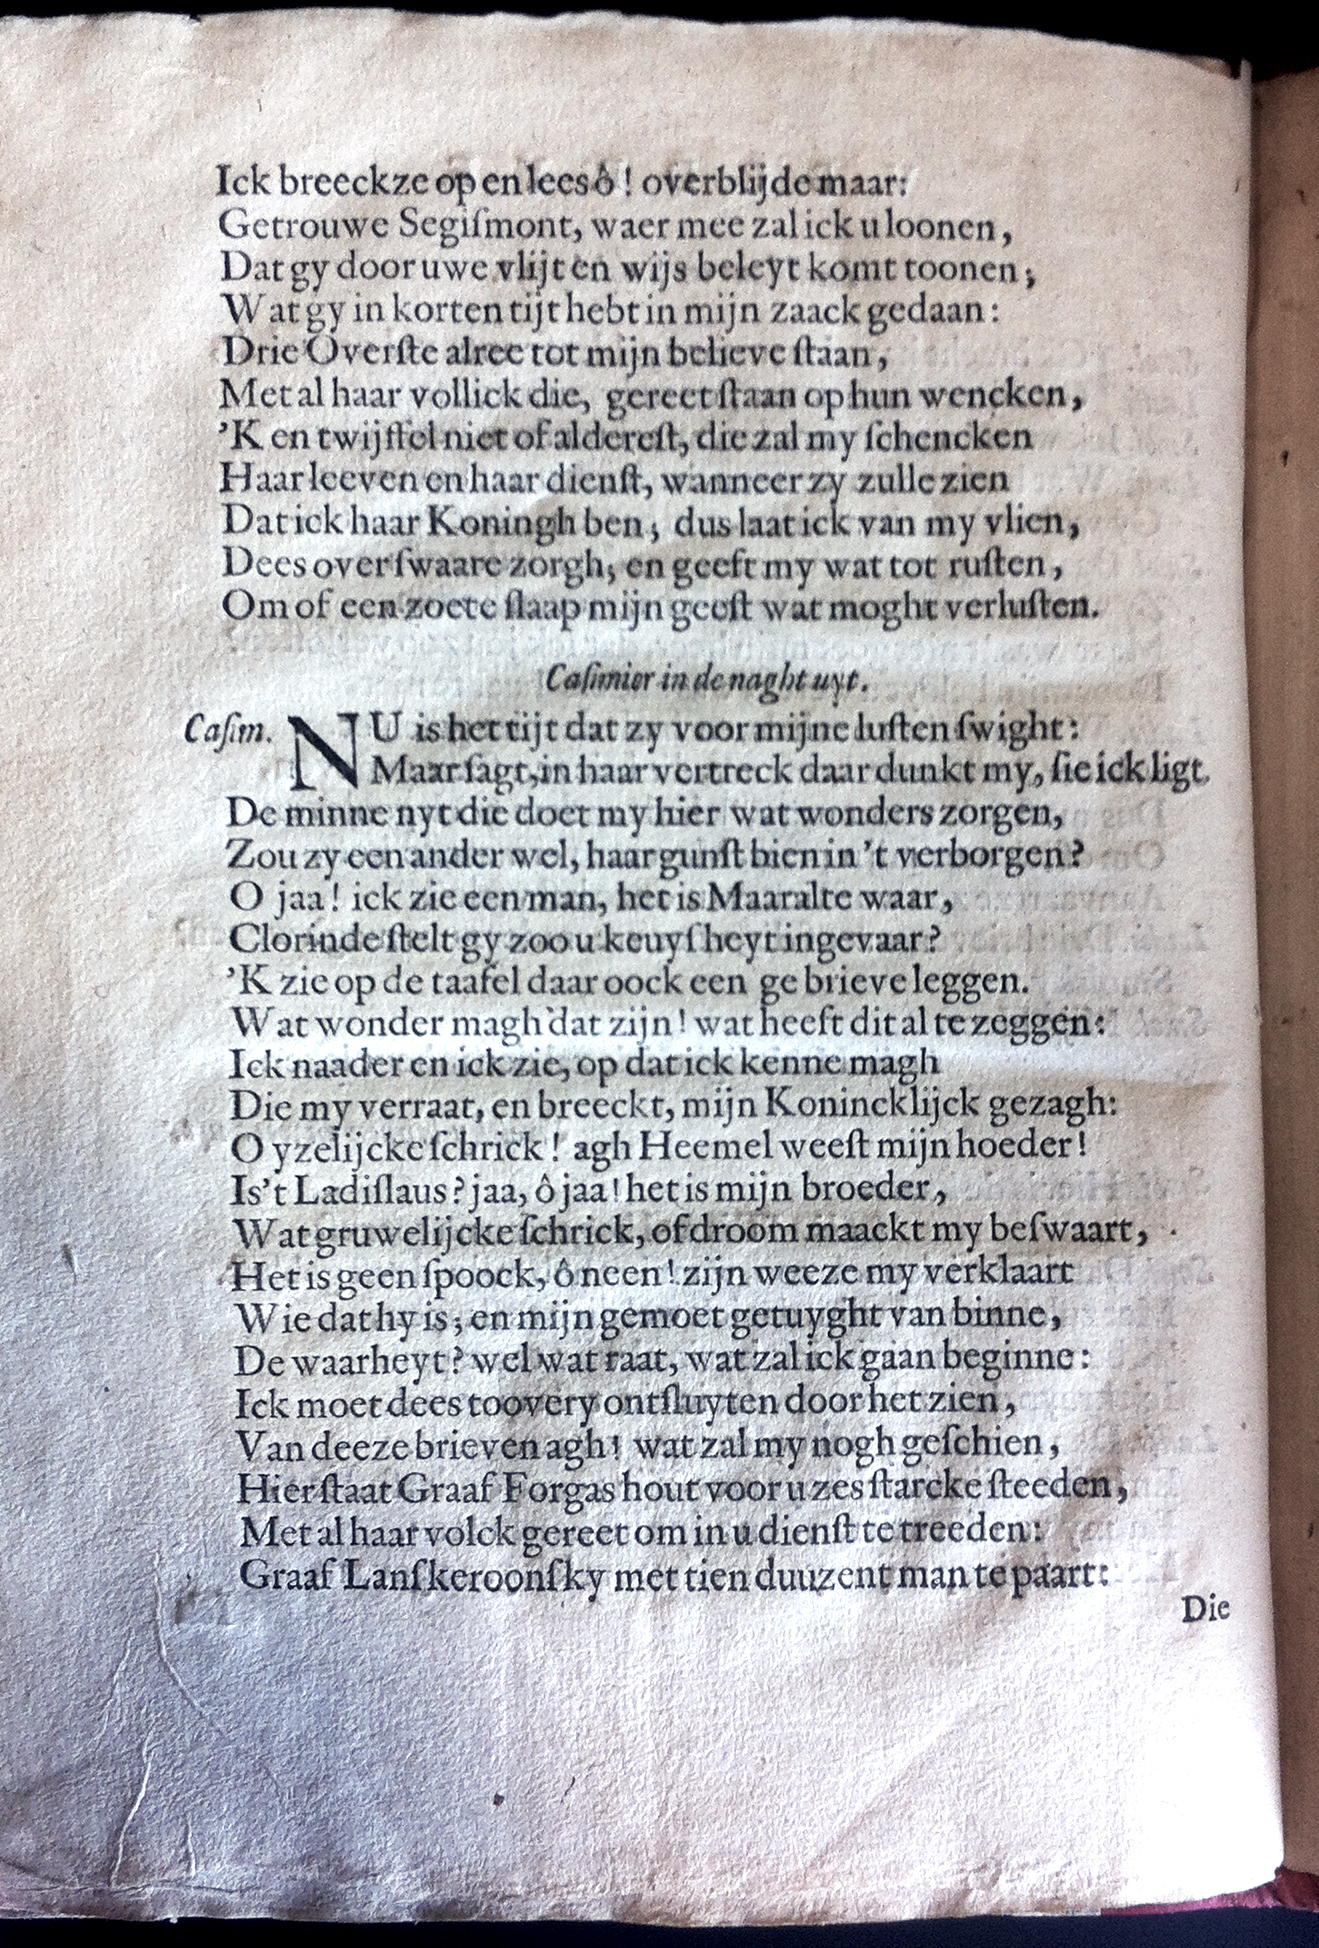 Ick breeckze op en lees ô! overblijde maar:
Getrouwe Segiſmont, waer mee zal ick u loonen,
Dat gy door uwe vlijt en wijs beleyt komt toonen;
Wat gy in korten tijt hebt in mijn zaack gedaan:
Drie Overſte alree tot mijn believe ſtaan,
Met al haar vollick die, gereet ſtaan op hun wencken,
'K en twijffel niet of aldereſt, die zal my ſchencken
Haar leeven en haar dienſt, wanneer zy zulle zien
Dat ick haar Koningh ben; dus laat ick van my vlien,
Dees overſwaare zorgh; en geeft my wat tot ruſten,
Om of een zoete ſlaap mijn geeſt wat moght verluſten.
Caſimier in de naght uyt.
Caſim. NU is het tijt dat zy voor mijne luſten ſwight:
Maar ſagt, in haar vertreck daar dunkt my, ſie ick ligt.
De minne nyt die doet my hier wat wonders zorgen,
Zou zy een ander wel, haar gunſt bien in 't verborgen?
O jaa! ick zie een man, het is Maar alte waar,
Clorinde ſtelt gy zoo u keuyſheyt in gevaar?
'K zie op de taafel daar oock een ge brieve leggen.
Wat wonder magh dat zijn! wat heeft dit al te zeggen:
Ick naader en ick zie, op dat ick kenne magh
Die my verraat, en breeckt, mijn Konincklijck gezagh:
O yzelijcke ſchrick! agh Heemel weeſt mijn hoeder!
Is't Ladiſlaus? jaa, ô jaa! het is mijn broeder,
Wat gruwelijcke ſchrick, of droom maackt my beſwaart,
Het is geen ſpoock, ô neen! zijn weeze my verklaart
Wie dat hy is; en mijn gemoet getuyght van binne,
De waarheyt? wel wat raat, wat zal ick gaan beginne:
Ick moet dees toovery ontſluyten door het zien,
Van deeze brieven agh! wat zal my nogh geſchien,
Hier ſtaat Graaf Forgas hout voor u zes ſtarcke ſteeden,
Met al haar volck gereet om in u dienſt te treeden:
Graaf Lanſkeroonſky met tien duuzent man te paart:
Die